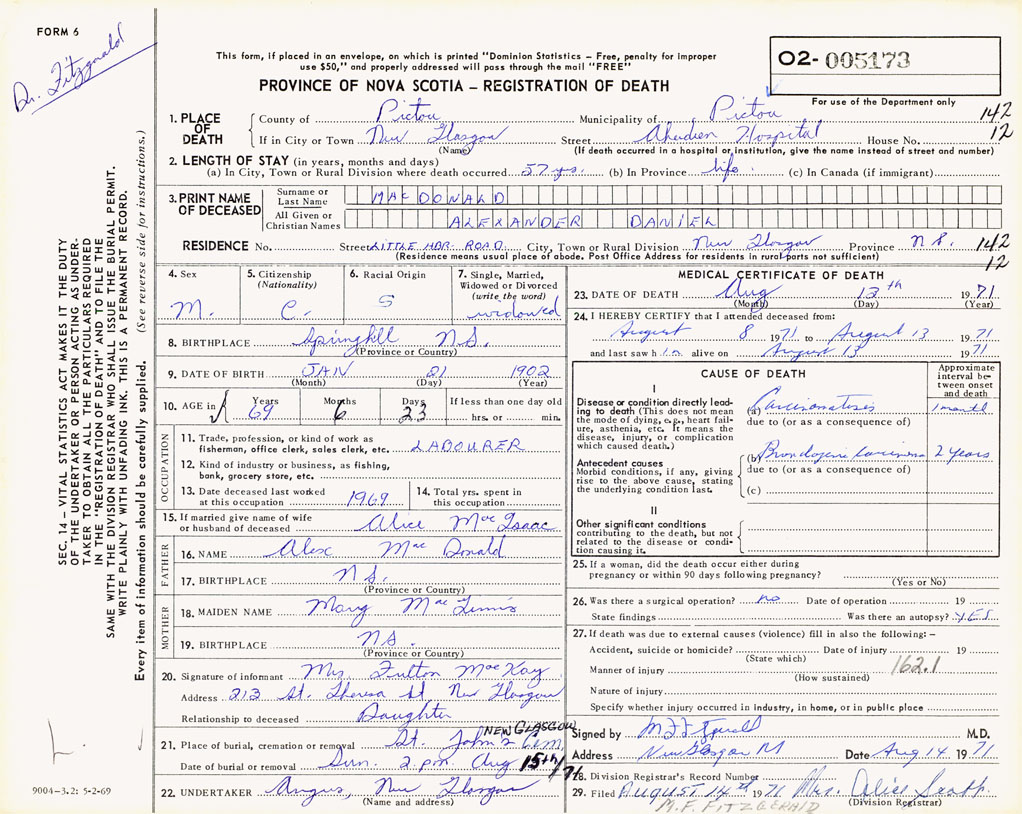 FORM 6
Dr. Fitzgerald
This form, if placed in an envelope, on which is printed "Dominion Statistics – Free, penalty for improper
use $50," and properly addressed will pass through the mail "FREE"
02- 005173
For use of the Department only
PROVINCE OF NOVA SCOTIA – REGISTRATION OF DEATH
1. PLACE OF DEATH
County of Pictou Municipality of Pictou 142
If in City or Town New Glasgow Street Aberdeen Hospital House No. 12
(Name) (If death occurred in a hospital or institution, give the name instead of street and number)
2. LENGTH OF STAY (in years, months and days)
(a) In City, Town or Rural Division where death occurred 57 yrs. (b) In Province life (c) In Canada (if immigrant)
3. PRINT NAME OF DECEASED
Surname or Last Name MAC DONALD
All Given or Christian Names ALEXANDER DANIEL
RESIDENCE No. Street LITTLE HBR. ROAD City, Town or Rural Division New Glasgow Province N.S. 142
(Residence means usual place of abode. Post Office Address for residents in rural parts not sufficient) 12
4. Sex M.
5. Citizenship (Nationality) C.
6. Racial Origin S
7. Single, Married, Widowed or Divorced (write the word) widowed
8. BIRTHPLACE Springhill N.S.
(Province or Country)
9. DATE OF BIRTH JAN 21 1902
(Month) (Day) (Year)
10. AGE in Years 69 Months 6 Days 23 If less than one day old
hrs. or min.
OCCUPATION
11. Trade, profession, or kind of work as
fisherman, office clerk, sales clerk, etc. LABOURER
12. Kind of industry or business, as fishing,
bank, grocery store, etc.
13. Date deceased last worked at this occupation 1969
14. Total yrs. spent in this occupation
15. If married give name of wife
or husband of deceased Alice MacIsaac
FATHER
16. NAME Alex MacDonald
17. BIRTHPLACE N.S.
(Province or Country)
MOTHER
18. MAIDEN NAME Mary
19. BIRTHPLACE N.S.
(Province or Country)
20. Signature of informant Mrs. Fulton MacKay
Address 213 St. Theresa St. New Glasgow
Relationship to deceased Daughter
21. Place of burial, cremation or removal St. John's Cem. NEW GLASGOW
Date of burial or removal Sun. 2 p.m. Aug 15th/71
22. UNDERTAKER Angus, New Glasgow
(Name and address)
MEDICAL CERTIFICATE OF DEATH
23. DATE OF DEATH Aug 13th 1971
(Month) (Day) (Year)
24. I HEREBY CERTIFY that I attended deceased from:
August 8 1971 to August 13 1971
and last saw him alive on August 13 1971
CAUSE OF DEATH
Approximate interval between onset and death
I
Disease or condition directly lead-
ing to death (This does not mean
the mode of dying, e.g., heart fail-
ure, asthenia, etc. It means the
disease, injury, or complication
which caused death.)
(a) Carcinomatosis 1 month
due to (or as a consequence of)
Antecedent causes
Morbid conditions, if any, giving
rise to the above cause, stating
the underlying condition last.
(b) Bronchogenic Carcinoma 2 years
due to (or as a consequence of)
(c)
II
Other significant conditions
contributing to the death, but not
related to the disease or condi-
tion causing it.
25. If a woman, did the death occur either during
pregnancy or within 90 days following pregnancy?
(Yes or No)
26. Was there a surgical operation? no Date of operation 19
State findings Was there an autopsy? YES
27. If death was due to external causes (violence) fill in also the following: –
Accident, suicide or homicide? Date of injury 19
(State which)
Manner of injury 162.1
(How sustained)
Nature of injury
Specify whether injury occurred in industry, in home, or in public place
Signed by M F Fitzgerald M.D.
Address New Glasgow Date Aug 14 1971
28. Division Registrar's Record Number
29. Filed August 14th 1971 Mrs. Alice
M.F. FITZGERALD (Division Registrar)
SEC. 14 – VITAL STATISTICS ACT MAKES IT THE DUTY
OF THE UNDERTAKER OR PERSON ACTING AS UNDER-
TAKER TO OBTAIN ALL THE PARTICULARS REQUIRED
IN THE "REGISTRATION OF DEATH" AND TO FILE THE
SAME WITH THE DIVISION REGISTRAR WHO SHALL ISSUE THE BURIAL PERMIT.
WRITE PLAINLY WITH UNFADING INK. THIS IS A PERMANENT RECORD.
Every item of information should be carefully supplied. (See reverse side for instructions.)
9004-3.2: 5-2-69